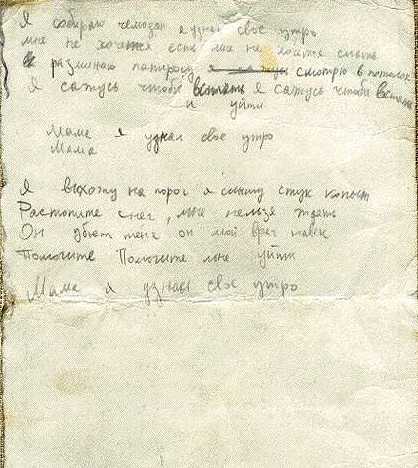 Я собираю чемодан я узнал свое утро
мне не хочется есть мне не хочется спать
я разминаю папиросу смотрю в потолок
Я сажусь чтобы встать Я сажусь чтобы встать
и уйти
Мама я узнал свое утро
Мама
Я выхожу на порог я слышу стук копыт
Растопите снег, мне нельзя ждать
Он убьет меня он мой враг навек
Помогите Помогите мне уйти
Мама я узнал свое утро